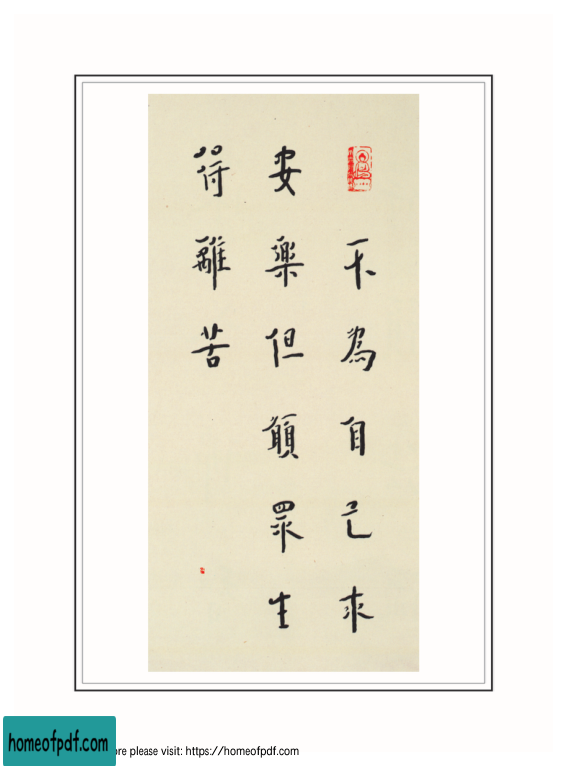 不為自己求
安樂但願眾生
得離苦
homeofpdf.com
ore please visit: https://homeofpdf.com